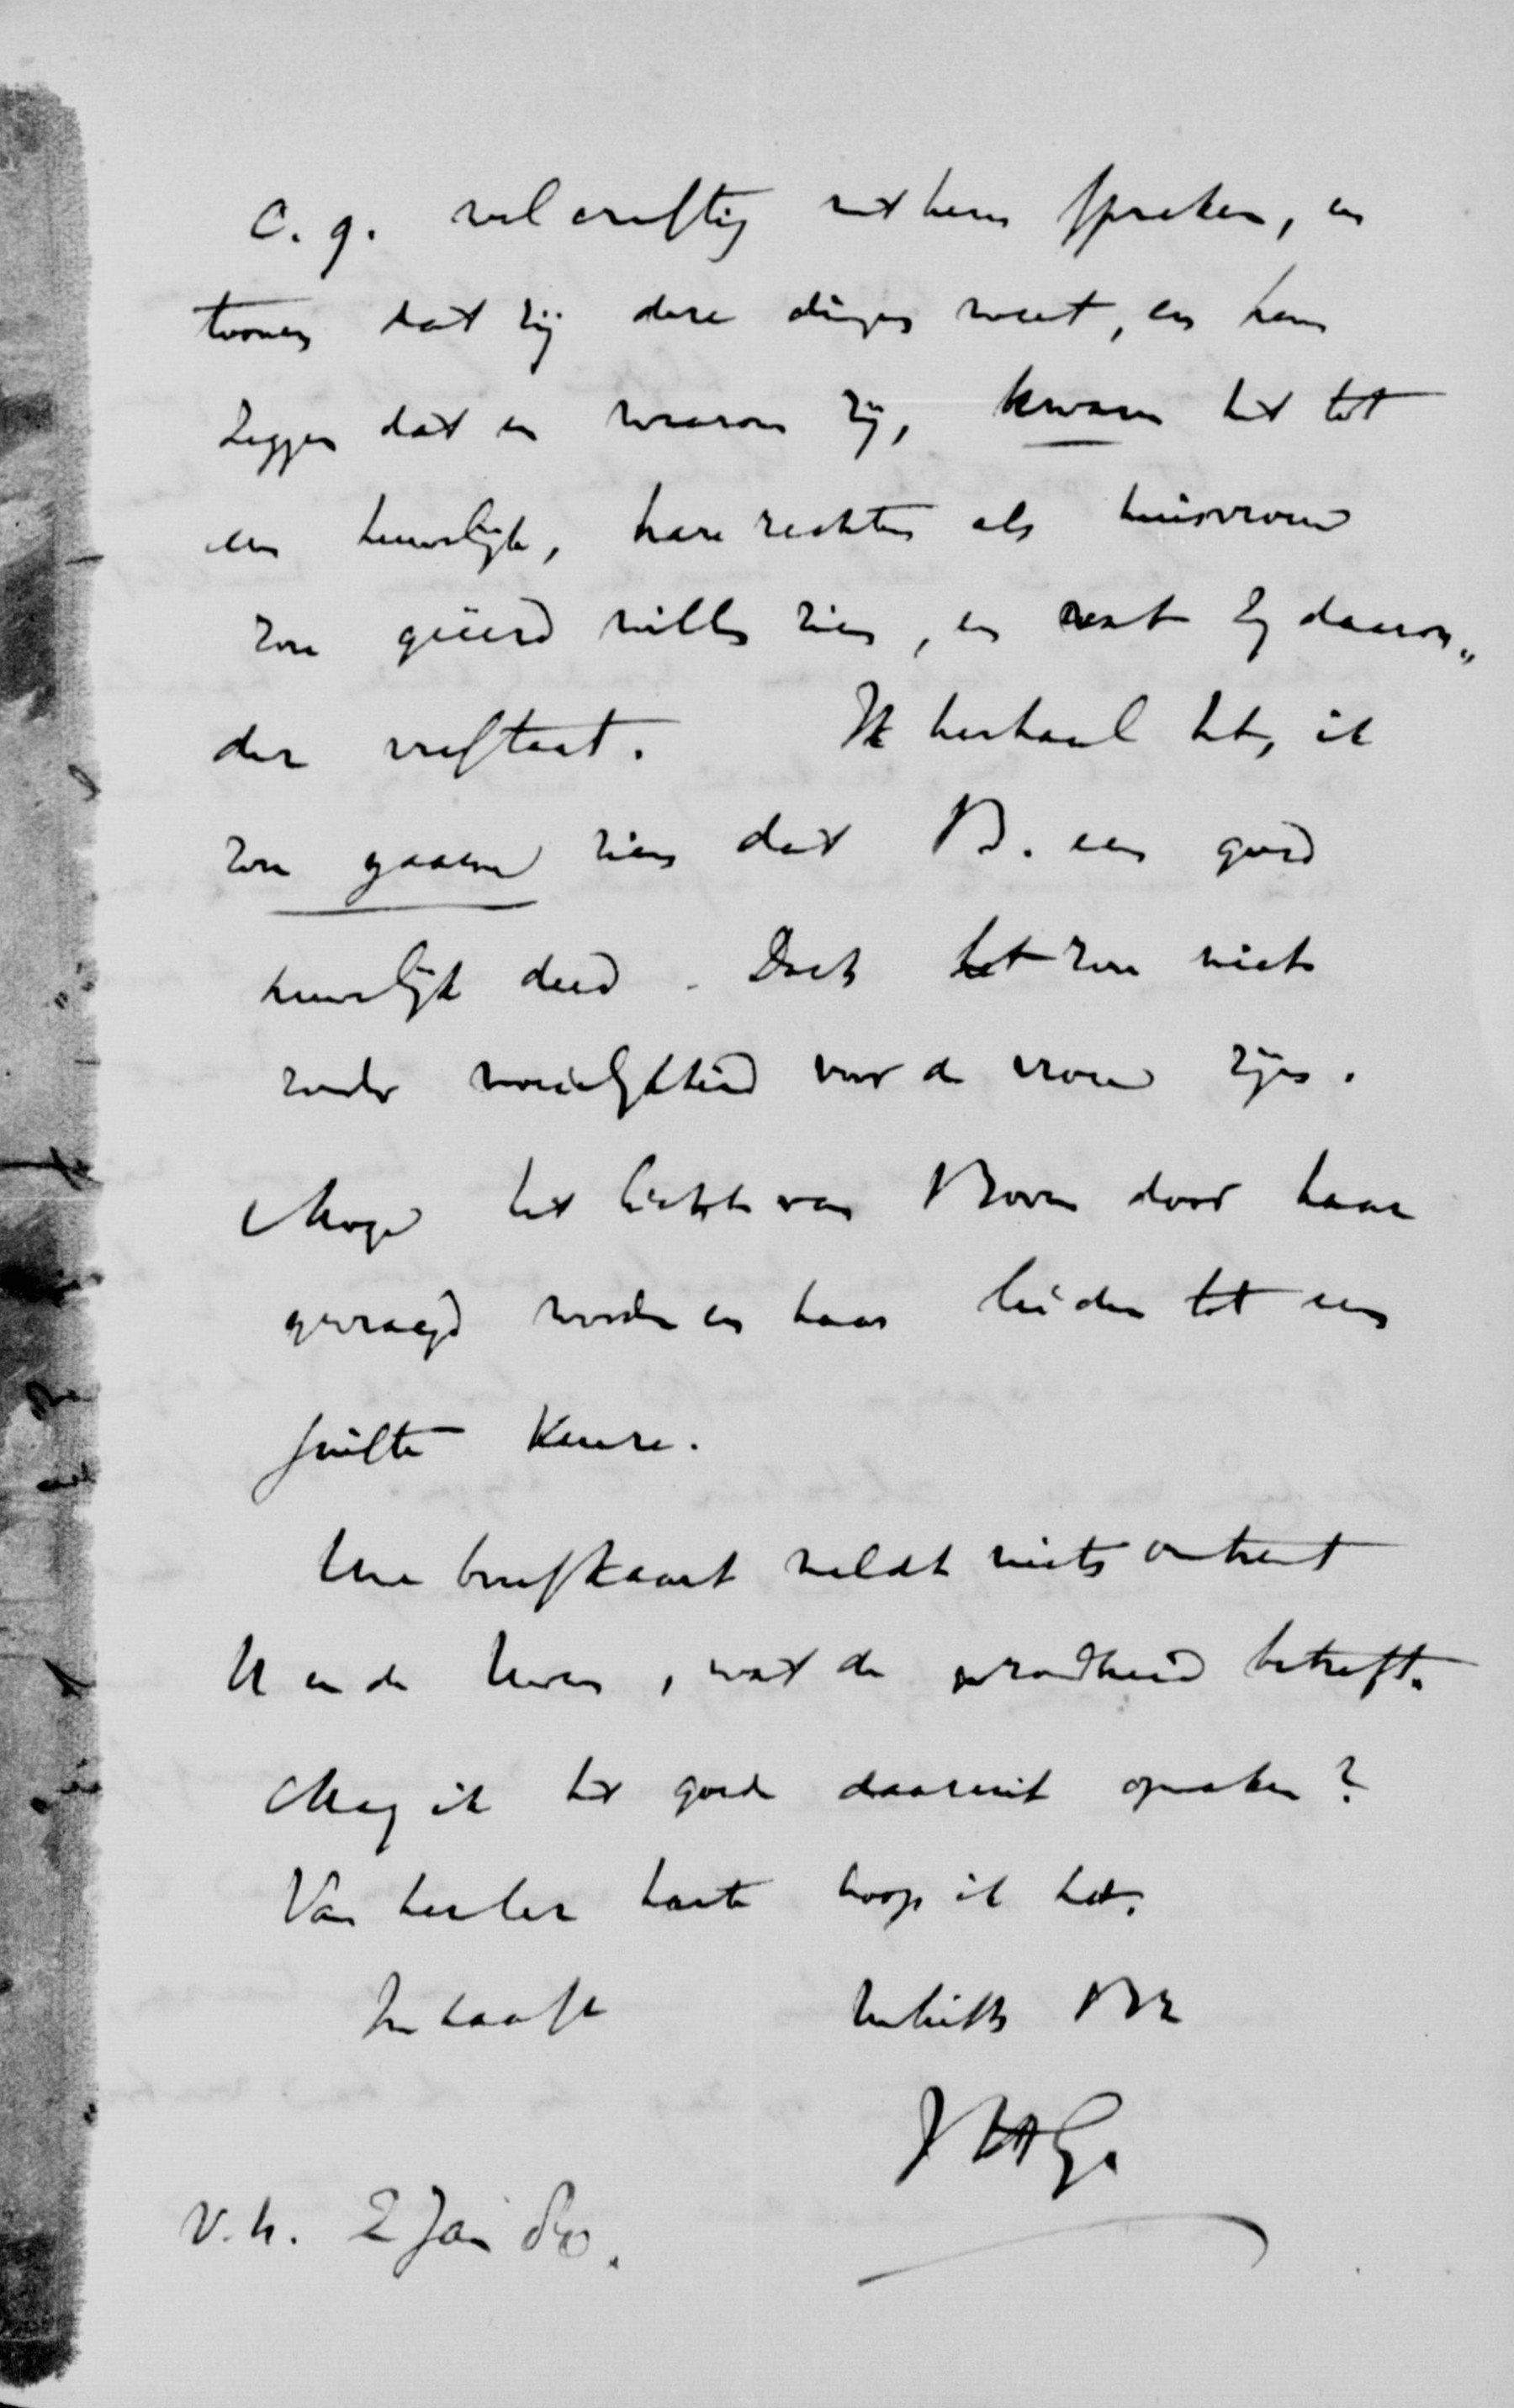 c.q. wel ernstig met hem spreken, en
toonen dat zij deze dingen weet, en hem
zeggen dat en waarom zij, kwam het tot
een huwelijk, hare rechten als huisvrouw
zou geëerd willen zien, en wat zij daaron„
der verstaat. Ik herhaal het, ik
zou gaarne zien dat B. een goed
huwelijk deed. Doch het zou niet
zonder moeielijkheid voor de vrouw zijn.
Moge het licht van Boven door haar
gevraagd worden en haar leiden tot een
juiste keuze.
Uwe briefkaart meldt niets omtrent
U en de Uwen, wat de gezondheid betreft.
Mag ik het goede daaruit opmaken?
Van heeler harte hoop ik het.
In haast
v.h. 2 Jan 80.